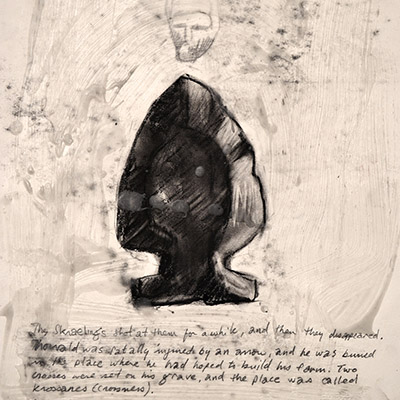 The Skraelings shot at them for a while, and then they disappeared.
Thorvald was fatally injured by an arrow, and he was buried
in the place where he had hoped to build his farm. Two
crosses were set on his grave, and the place was called
Krossanes (Crossness).